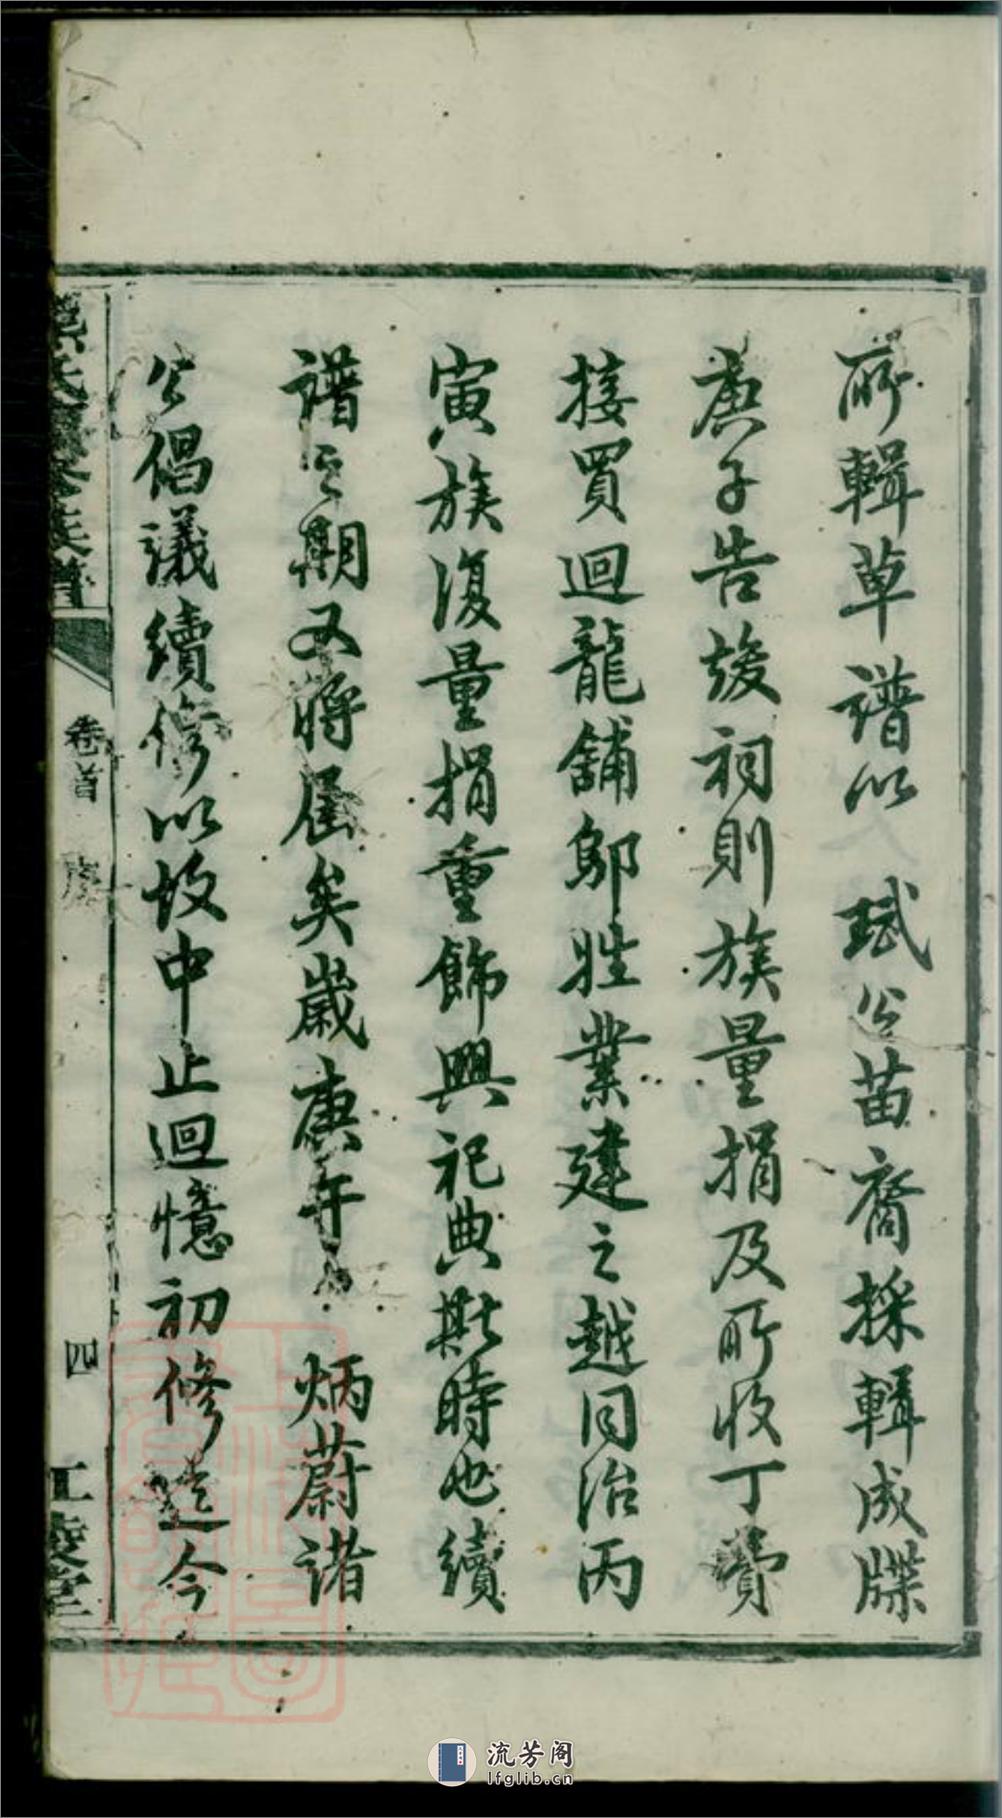 所輯草譜以 珷公苗裔採輯成牒
庚子告竣祠則族量捐及所收丁費
接買迴龍舖鄔姓業建之越同治丙
寅族復量捐重飾興祀典斯時也續
譜之期又將屆矣歲庚午 炳蔚諸
公倡議續修以故中止迴憶初修迄今
熊氏續修族譜
卷首
序
四
江陵堂
流芳阁
lfglib.cn